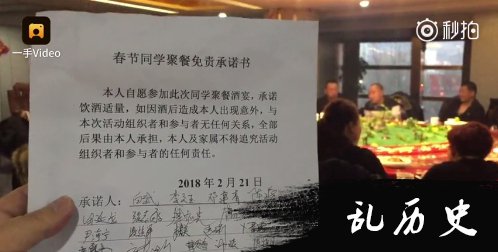 一手Video
秒拍
春节同学聚餐免责承诺书
本人自愿参加此次同学聚餐酒宴，承诺
饮酒适量，如因酒后造成本人出现意外，与
本次活动组织者和参与者无任何关系，全部
后果由本人承担，本人及家属不得追究活动
组织者和参与者的任何责任。
2018 年 2 月 21 日
承诺人：
乱历史